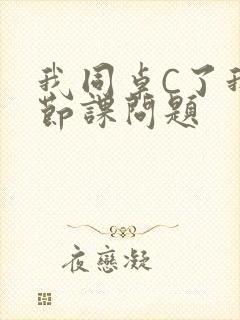 我同桌C了我
節課問題
夜戀凝